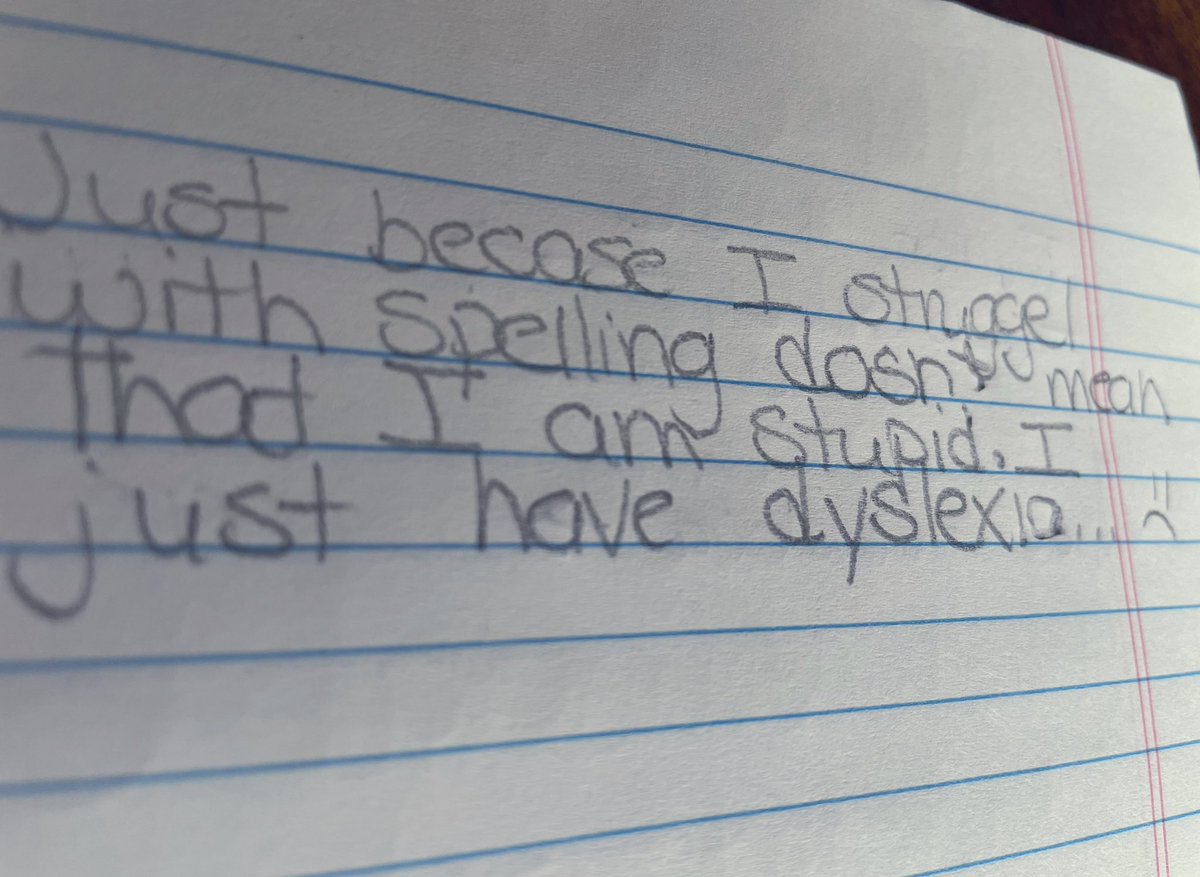 Just becase I strugel
with spelling dosn't mean
that I am stupid. I
just have dyslexia... :(